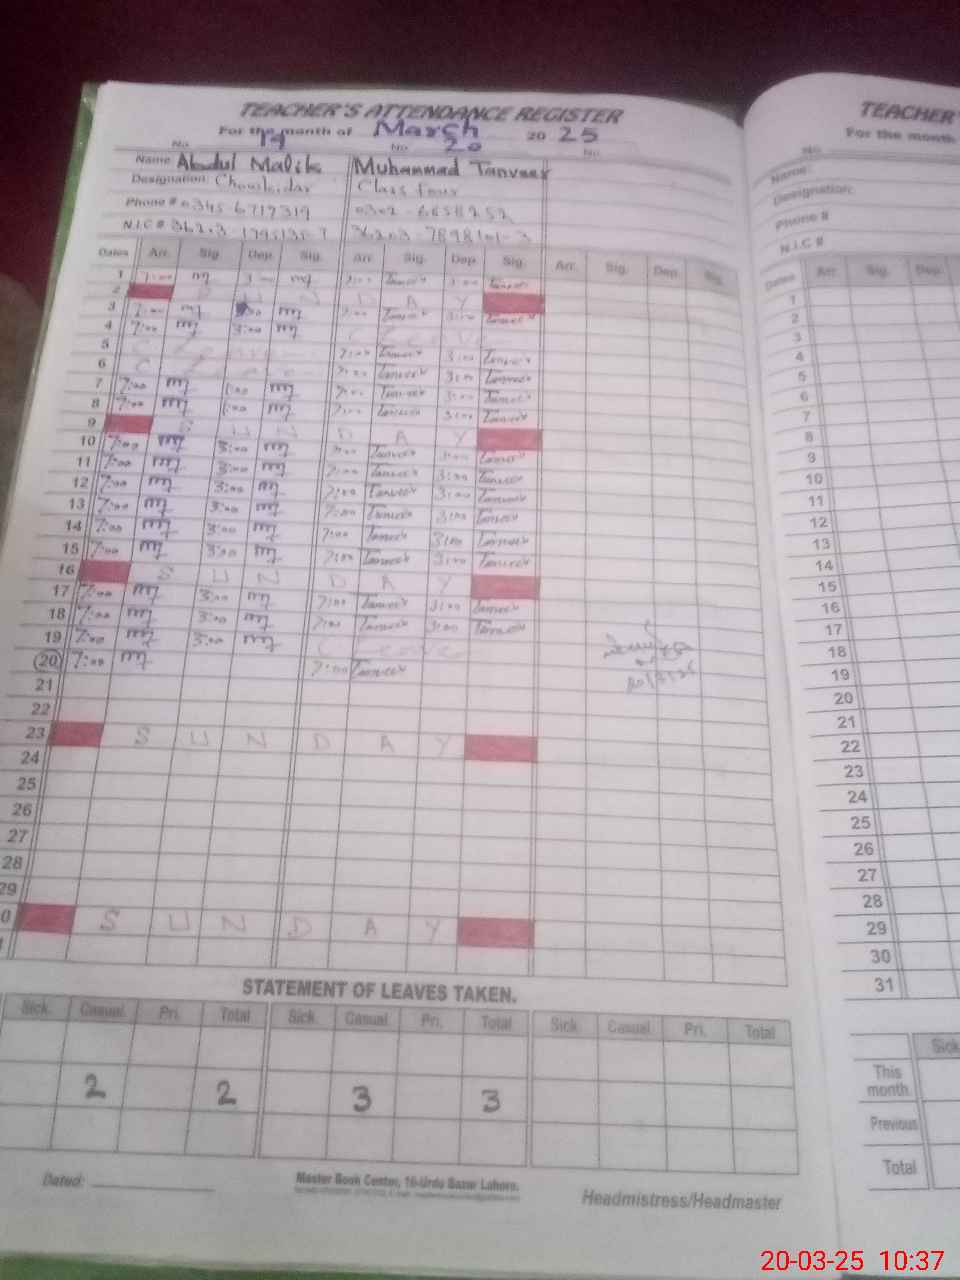 TEACHER'S ATTENDANCE REGISTER
For the month of March 2025
No. 19 No. 20 No.
Name: Abdul Malik Muhammad Tanveer
Designation: Chowkidar Class four
Phone # 0345-6717319
N.I.C #
Dates Arr. Sig. Dep. Sig. Arr. Sig. Dep. Sig. Arr. Sig. Dep. Sig.
1 7:00 7:00 Tanveer 3:00 Tanveer
2 S U N D A Y
3 7:00 7:00 Tanveer 3:00 Tanveer
4 7:00 3:00 C Leave
5 C Leave 7:00 Tanveer 3:00 Tanveer
6 C Leave 7:00 Tanveer 3:00 Tanveer
7 7:00 1:00 7:00 Tanveer 3:00 Tanveer
8 7:00 1:00 7:00 Tanveer 3:00 Tanveer
9 S U N D A Y
10 7:00 3:00 7:00 Tanveer 3:00 Tanveer
11 7:00 3:00 7:00 Tanveer 3:00 Tanveer
12 7:00 3:00 7:00 Tanveer 3:00 Tanveer
13 7:00 3:00 7:00 Tanveer 3:00 Tanveer
14 7:00 3:00 7:00 Tanveer 3:00 Tanveer
15 7:00 3:00 7:00 Tanveer 3:00 Tanveer
16 S U N D A Y
17 7:00 3:00 7:00 Tanveer 3:00 Tanveer
18 7:00 3:00 7:00 Tanveer 3:00 Tanveer
19 7:00 3:00 C Leave
20 7:00 7:00 Tanveer
21
22
23 S U N D A Y
24
25
26
27
28
29
0 S U N D A Y
1
STATEMENT OF LEAVES TAKEN.
Sick. Casual Pri. Total Sick. Casual Pri. Total Sick. Casual Pri. Total
2 2 3 3
Dated:
Master Book Center, 16-Urdu Bazar Lahore.
Headmistress/Headmaster
TEACHER'
For the month
No.
Name:
Designation:
Phone #
N.I.C #
Dates Arr. Sig. Dep.
1
2
3
4
5
6
7
8
9
10
11
12
13
14
15
16
17
18
19
20
21
22
23
24
25
26
27
28
29
30
31
Sick
This month
Previous
Total
20-03-25 10:37